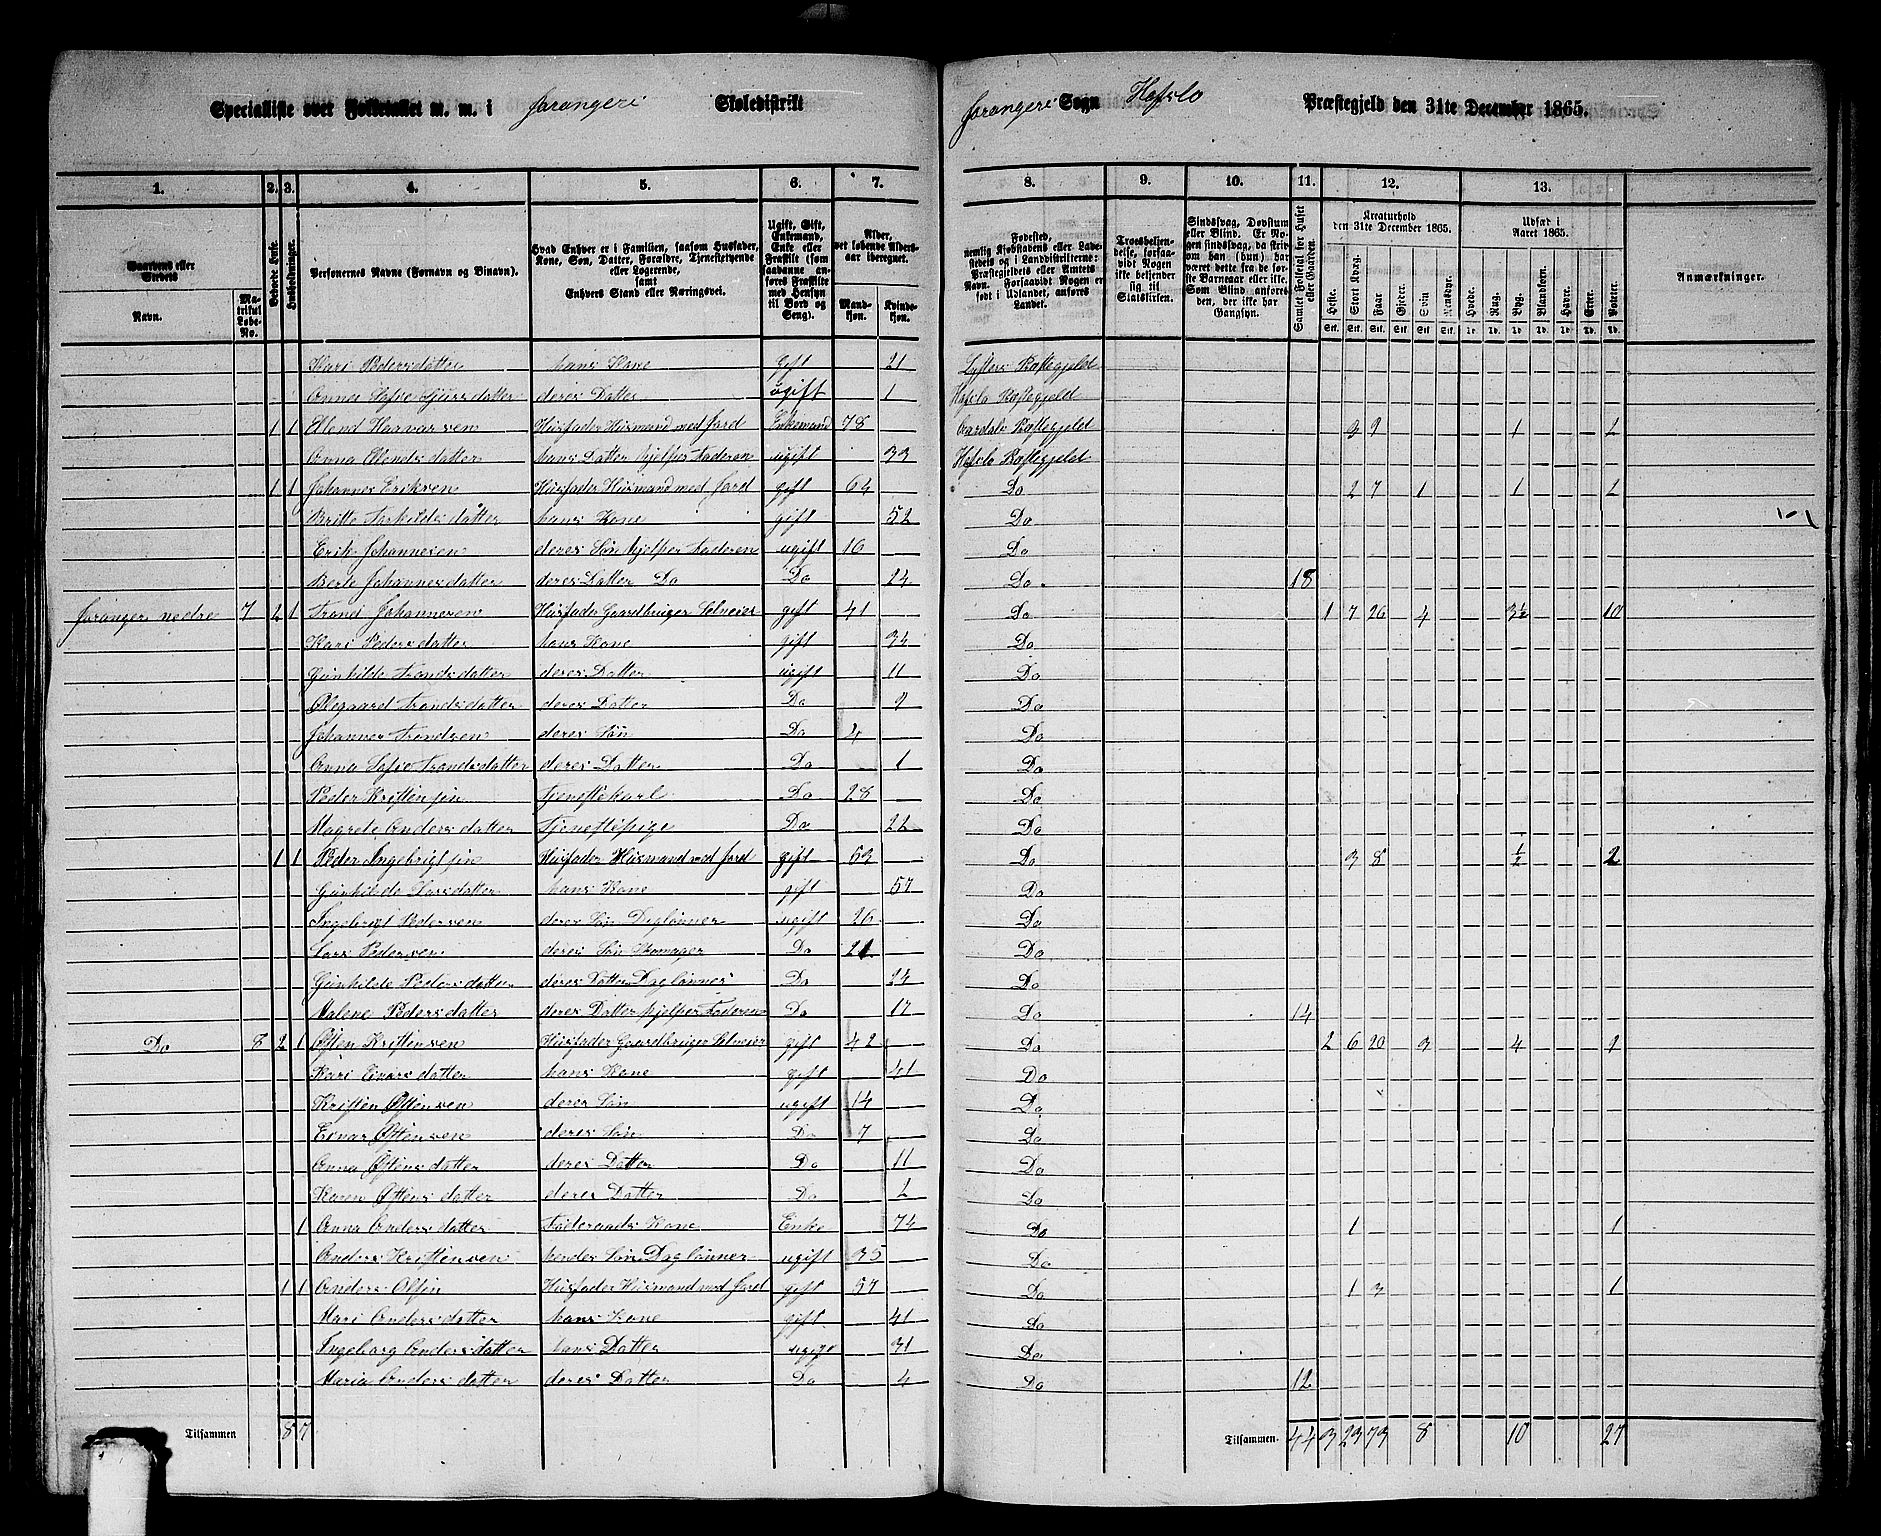 Specialliste over Folketallet m. m. i Joranger Skoledistrikt Joranger Sogn Hafslo Præstegjeld den 31te December 1865.
1. 2. 3. 4. 5. 6. 7. 8. 9. 10. 11. 12. 13.
Gaardens eller Stedets Navn. Matrikul Løbe-No. Bebodde Huse. Husholdninger. Personernes Navne (Fornavn og Binavn). Hvad Enhver er i Familien, saasom Husfader, Kone, Søn, Datter, Forældre, Tjenestetyende eller Logerende, samt Enhvers Stand eller Næringsvei. Ugift, Gift, Enkemand, Enke eller Fraskilt (som saadanne anføres Fraskilte med Hensyn til Bord og Seng). Alder, det løbende Aldersaar iberegnet. Mandkjøn. Kvindekjøn. Fødested, Troesbekjendelse, forsaavidt Nogen ikke bekjender sig til Statskirken. Sindssvag, Døvstum eller Blind. Samlet Folketal for Huset eller Gaarden. Kreaturhold den 31te December 1865. Heste. Stort Kvæg. Faar. Gjeder. Svin. Rensdyr. Udsæd i Aaret 1865. Hvede. Rug. Byg. Blandkorn. Havre. Erter. Poteter. Anmærkninger.
Kari Pedersdatter hans Kone gift 21 Lysters Præstegjeld
Anna Sofie Sjursdatter deres Datter ugift 1 Hafslo Præstegjeld
1 1 Elend Haavarsen Husfader Husmand med Jord Enkemand 78 Aardals Præstegjeld 3 9 1 2
Anna Elendsdatter hans Datter hjelper Faderen ugift 33 Hafslo Præstegjeld
1 1 Johannes Eriksen Husfader Husmand med Jord gift 64 Do 2 7 1 1 2
Britte Torkildsdatter hans Kone gift 52 Do
Erik Johannesen deres Søn hjelper Faderen ugift 16 Do
Berte Johannesdatter deres Datter Do Do 24 Do 18
Joranger nedre 7 2 1 Trond Johannesen Husfader Gaardbruger Selveier gift 41 Do 1 7 26 4 3½ 10
Kari Pedersdatter hans Kone gift 34 Do
Gunhilde Trondsdatter deres Datter ugift 11 Do
Olegaard Trondsdatter deres Datter Do 9 Do
Johannes Trondsen deres Søn Do 4 Do
Anna Sofie Trondsdatter deres Datter Do 1 Do
Peder Kristensen Tjenestekarl Do 28 Do
Magrete Andersdatter Tjenestepige Do 22 Do
1 1 Peder Ingebrigtsen Husfader Husmand med Jord gift 53 Do 3 8 ½ 2
Gunhilde Larsdatter hans Kone gift 57 Do
Ingebrigt Pedersen deres Søn Daglønner ugift 26 Do
Lars Pedersen deres Søn Skomager Do 21 Do
Gunhilde Pedersdatter deres Datter Daglønner Do 24 Do
Malene Pedersdatter deres Datter hjelper Faderen Do 17 Do 14
Do 8 2 1 Østen Kristensen Husfader Gaardbruger Selveier gift 42 Do 2 6 20 3 4 9
Kari Einarsdatter hans Kone gift 41 Do
Kristen Østensen deres Søn ugift 14 Do
Einar Østensen deres Søn Do 7 Do
Anna Østensdatter deres Datter Do 11 Do
Karen Østensdatter deres Datter Do 2 Do
1 Anna Andersdatter Føderaads Kone Enke 74 Do 1 1
Anders Kristensen hendes Søn Daglønner ugift 35 Do
1 1 Anders Olsen Husfader Husmand med Jord gift 57 Do 1 3 1
Mari Andersdatter hans Kone gift 41 Do
Ingeborg Andersdatter hans Datter ugift 31 Do
Maria Andersdatter deres Datter Do 4 Do 12
Tilsammen 8 7 Tilsammen 44 3 23 73 8 10 27